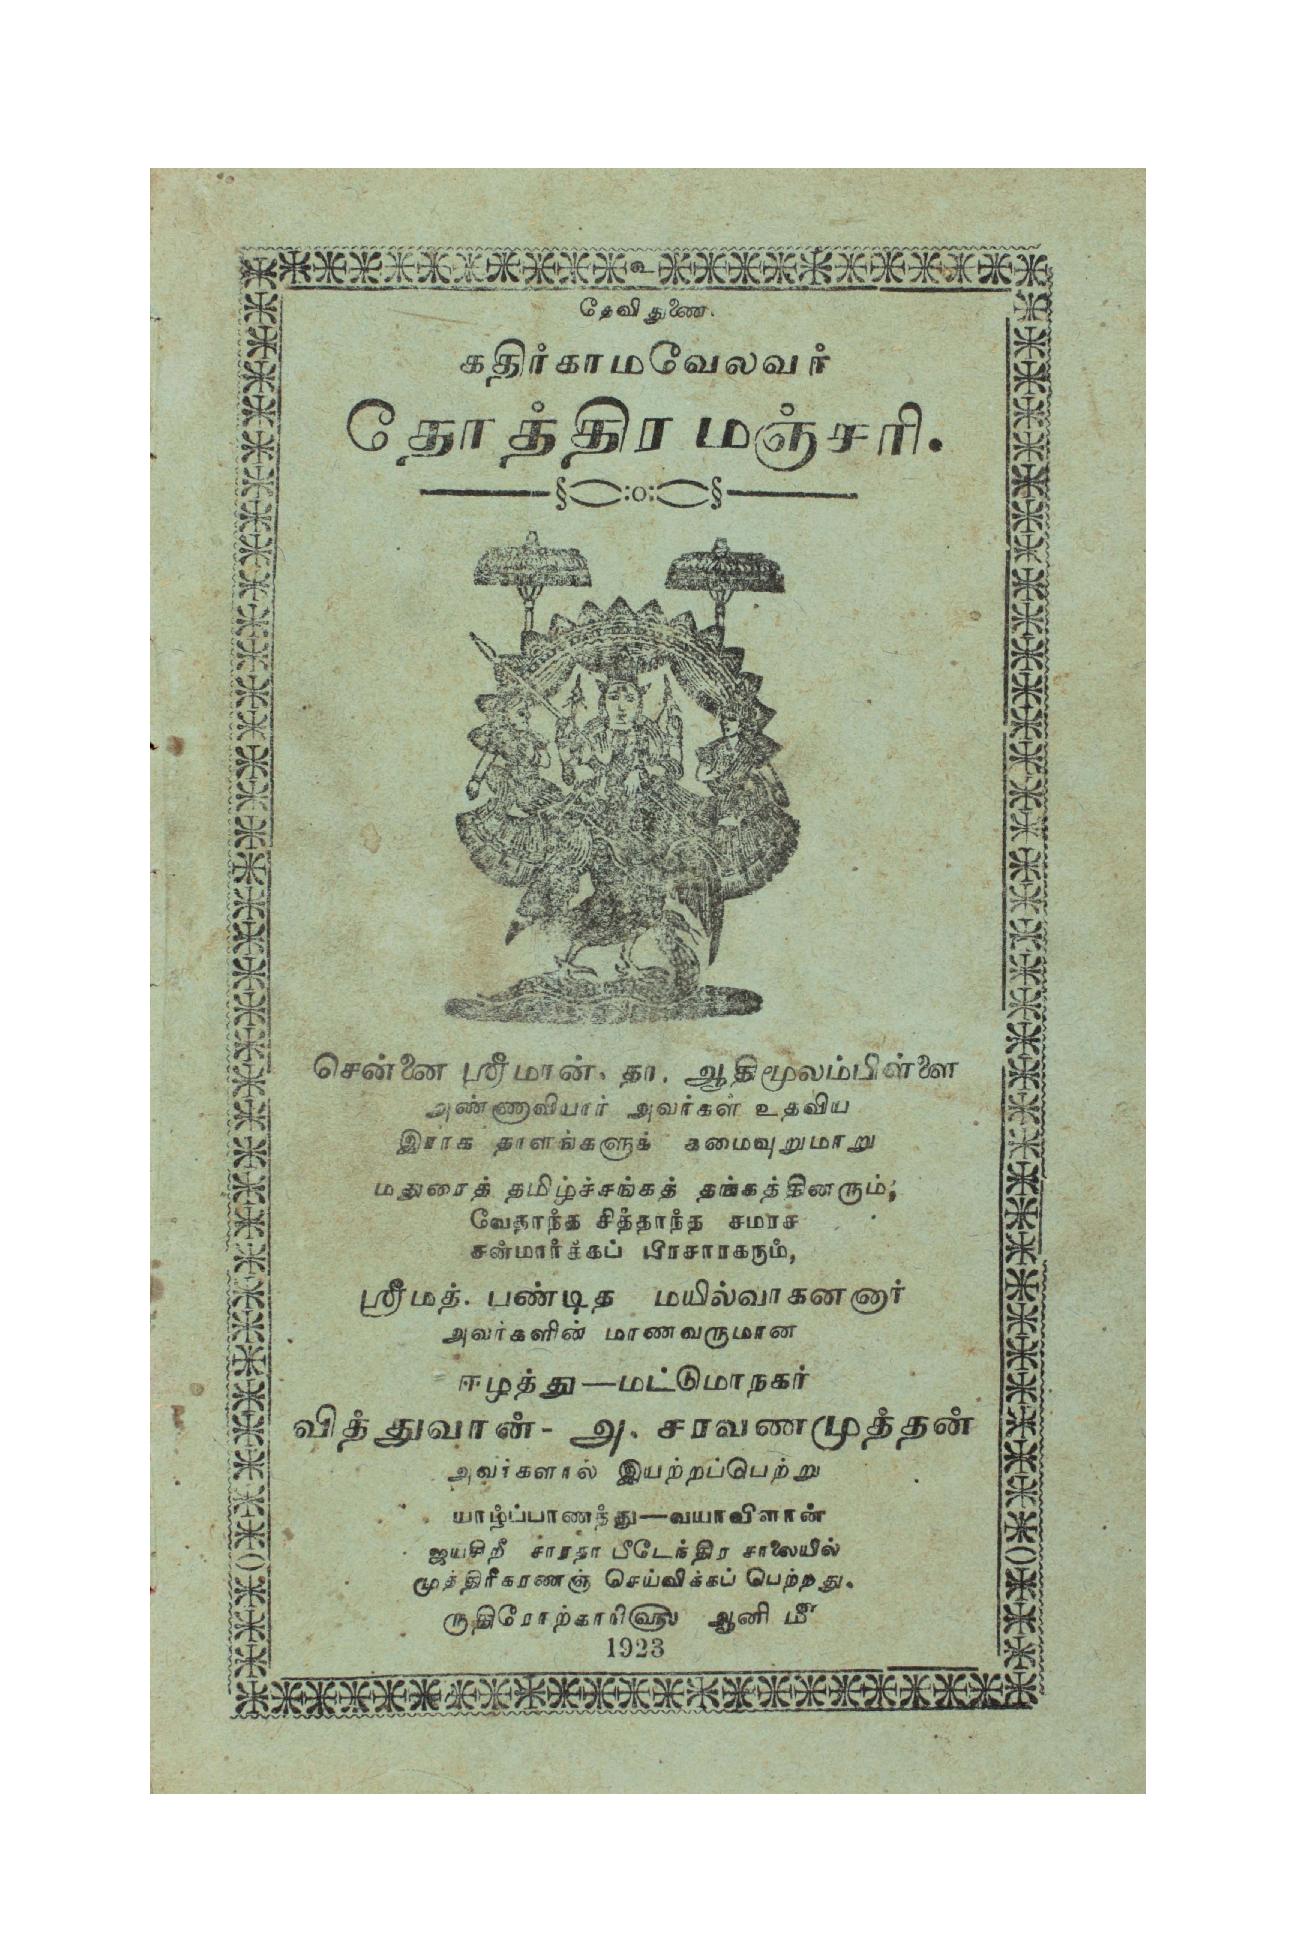 உ
தேவி துணை.
கதிர்காமவேலவர்
தோத்திர மஞ்சரி.
சென்னை ஸ்ரீமான். தா. ஆதிமூலம்பிள்ளை
அண்ணாவியார் அவர்கள் உதவிய
இராக தாளங்களுக் கமைவுறுமாறு
மதுரைத் தமிழ்ச்சங்கத் தங்கத்தினரும்;
வேதாந்த சித்தாந்த சமரச
சன்மார்க்கப் பிரசாரகரும்,
ஸ்ரீமத். பண்டித மயில்வாகனனார்
அவர்களின் மாணவருமான
ஈழத்து—மட்டுமாநகர்
வித்துவான்- அ. சரவணமுத்தன்
அவர்களால் இயற்றப்பெற்று
யாழ்ப்பாணத்து—வயாவிளான்
ஜயசிறீ சாரதா பீடேந்திர சாலையில்
முத்திரீகரணஞ் செய்விக்கப் பெற்றது.
ருதிரோற்காரி௵ ஆனி ௴
1923